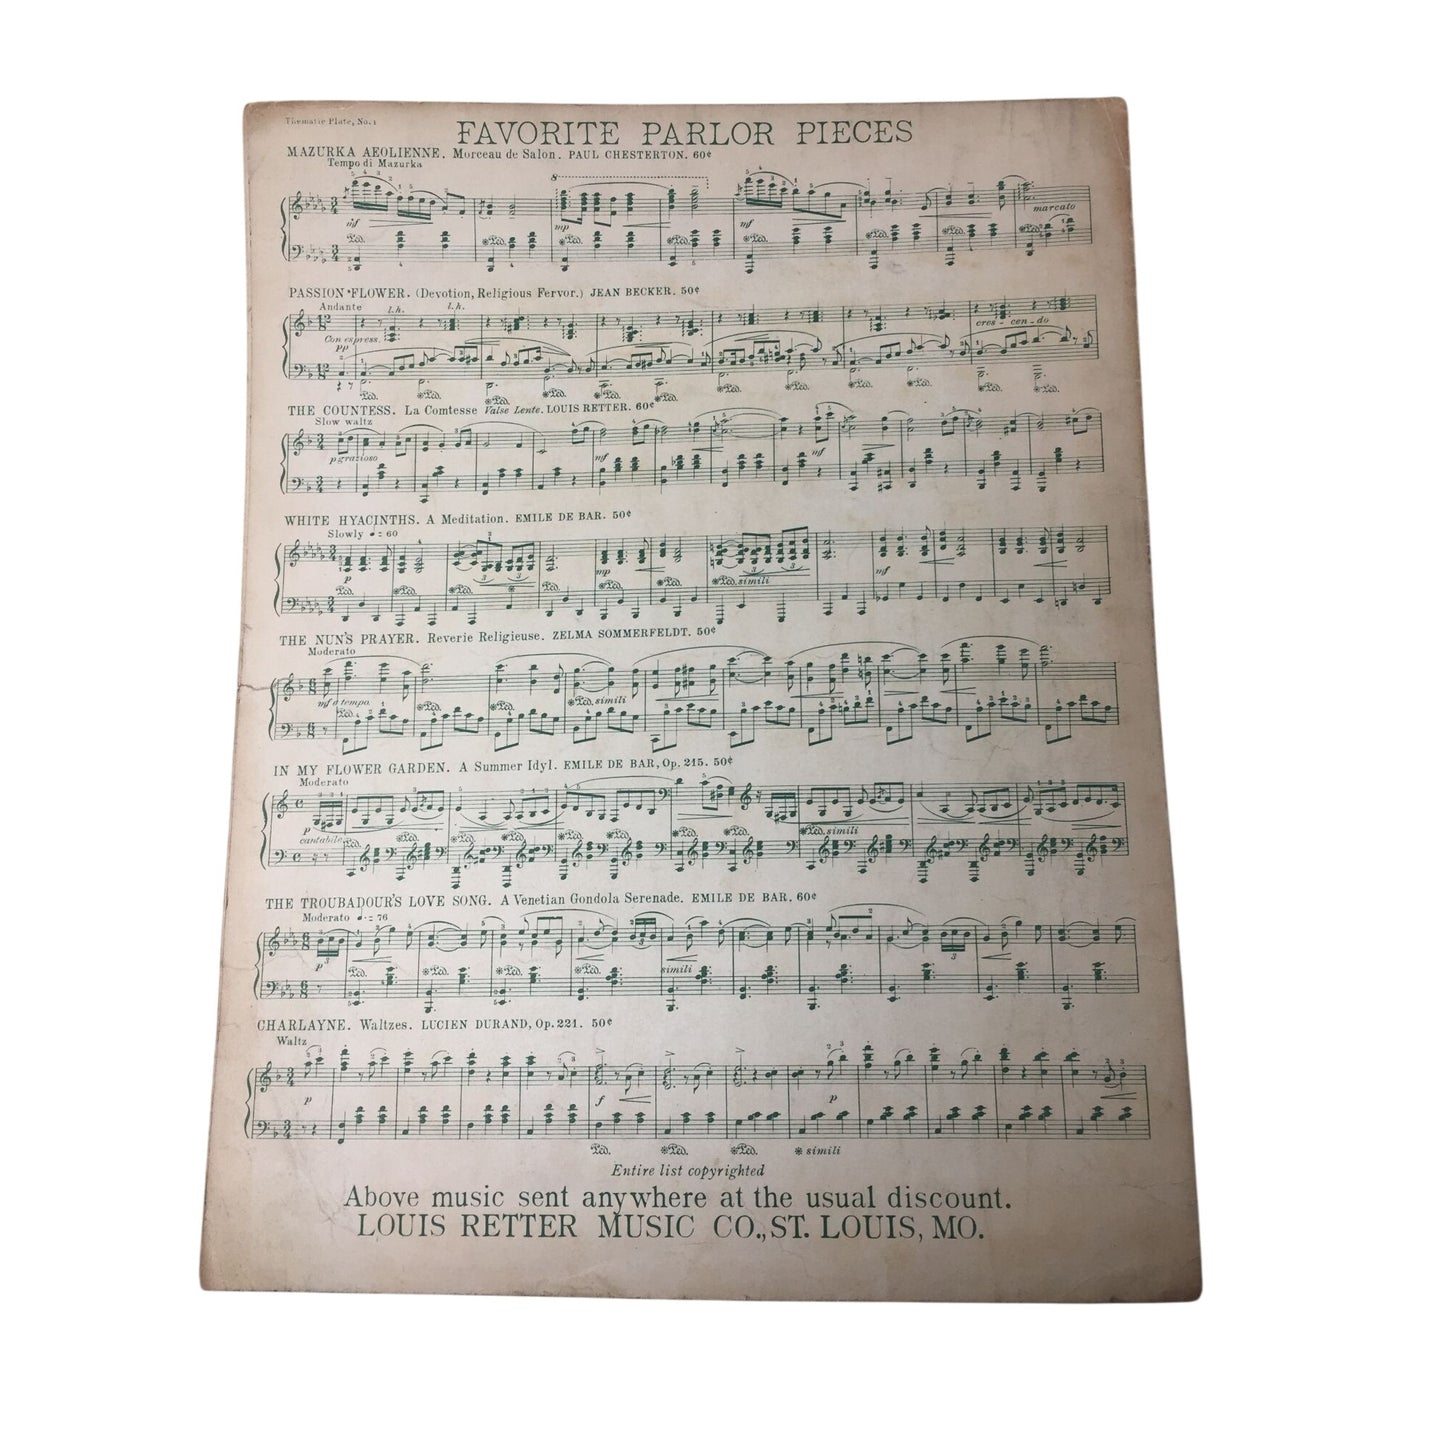 Thematic Plate, No. 1
FAVORITE PARLOR PIECES
MAZURKA AEOLIENNE. Morceau de Salon. PAUL CHESTERTON. 60¢
Tempo di Mazurka
8
mf mp mf marcato
PASSION FLOWER. (Devotion, Religious Fervor.) JEAN BECKER. 50¢
Andante l.h. l.h.
Con espress. cres - cen - do
pp
THE COUNTESS. La Comtesse Valse Lente. LOUIS RETTER. 60¢
Slow waltz
p grazioso mf mf
WHITE HYACINTHS. A Meditation. EMILE DE BAR. 50¢
Slowly ♩ = 60
p mp simili mf
THE NUN'S PRAYER. Reverie Religieuse. ZELMA SOMMERFELDT. 50¢
Moderato
mf a tempo simili
IN MY FLOWER GARDEN. A Summer Idyl. EMILE DE BAR, Op. 215. 50¢
Moderato
p
cantabile simili
THE TROUBADOUR'S LOVE SONG. A Venetian Gondola Serenade. EMILE DE BAR. 60¢
Moderato ♩. = 76
p simili
CHARLAYNE. Waltzes. LUCIEN DURAND, Op. 221. 50¢
Waltz
p f p
simili
Entire list copyrighted
Above music sent anywhere at the usual discount.
LOUIS RETTER MUSIC CO., ST. LOUIS, MO.